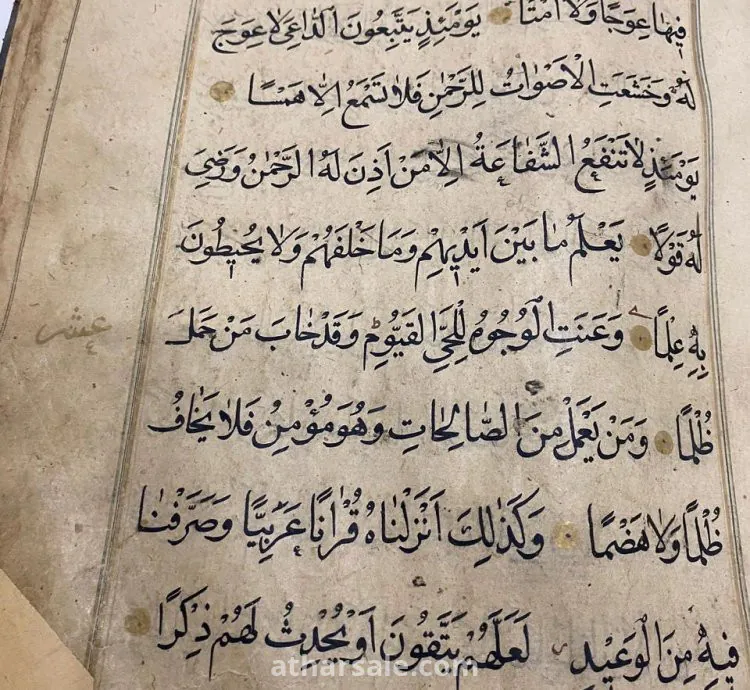 فِيهَا عِوَجًا وَلَا أَمْتًا يَوْمَئِذٍ يَتَّبِعُونَ الدَّاعِيَ لَا عِوَجَ
لَهُ وَخَشَعَتِ الْأَصْوَاتُ لِلرَّحْمٰنِ فَلَا تَسْمَعُ اِلَّا هَمْسًا
يَوْمَئِذٍ لَا تَنْفَعُ الشَّفَاعَةُ اِلَّا مَنْ اَذِنَ لَهُ الرَّحْمٰنُ وَرَضِيَ
لَهُ قَوْلًا يَعْلَمُ مَا بَيْنَ اَيْدِيهِمْ وَمَا خَلْفَهُمْ وَلَا يُحِيطُونَ
بِهِ عِلْمًا وَعَنَتِ الْوُجُوهُ لِلْحَيِّ الْقَيُّومِ وَقَدْ خَابَ مَنْ حَمَلَ
عشر
ظُلْمًا وَمَنْ يَعْمَلْ مِنَ الصَّالِحَاتِ وَهُوَ مُؤْمِنٌ فَلَا يَخَافُ
ظُلْمًا وَلَا هَضْمًا وَكَذٰلِكَ اَنْزَلْنَاهُ قُرْاٰنًا عَرَبِيًّا وَصَرَّفْنَا
فِيهِ مِنَ الْوَعِيدِ لَعَلَّهُمْ يَتَّقُونَ اَوْ يُحْدِثُ لَهُمْ ذِكْرًا
atharsale.com